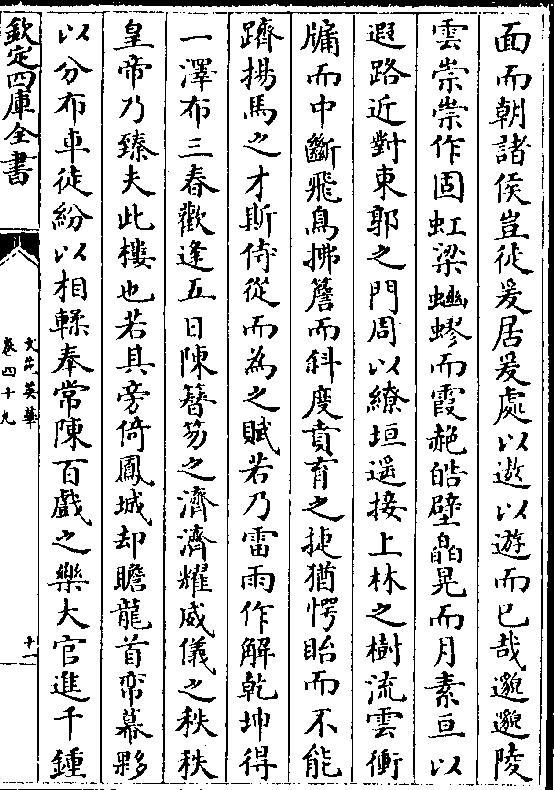 面而朝諸侯豈徒爰居爰處以遨以遊而已哉邈邈陵
雲崇崇作固虹梁蚴蟉而霞赩皓壁皛晃而月素亘以
遐路近對東郭之門周以繚垣遥接上林之樹流雲衝
牖而中斷飛鳥拂簷而斜度賁育之捷猶愕眙而不能
躋揚馬之才斯侍從而為之賦若乃雷雨作解乾坤得
一澤布三春歡逢五日陳簪笏之濟濟耀威儀之秩秩
皇帝乃臻夫此樓也若其旁倚鳳城却瞻龍首帟幕夥
以分布車徒紛以相轇奉常陳百戲之樂大官進千鍾
欽定四庫全書
文苑英華
卷四十九
十一